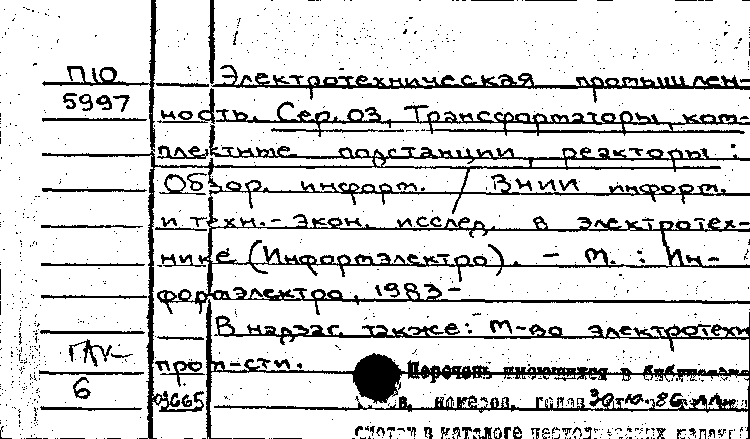 П10
5997
Электротехническая промышлен-
ность. Сер. 03, Трансформаторы, ком-
плектные подстанции, реакторы :
Обзор. информ. / ВНИИ информ.
и техн.-экон. исслед. в электротех-
нике (Информэлектро). - М. : Ин-
формэлектро, 1983-
В надзаг. также: М-во электротехн
пром-сти.
6
Перечень имеющихся в библиотеке
в, номеров, годов
смотри в каталоге периодических изданий